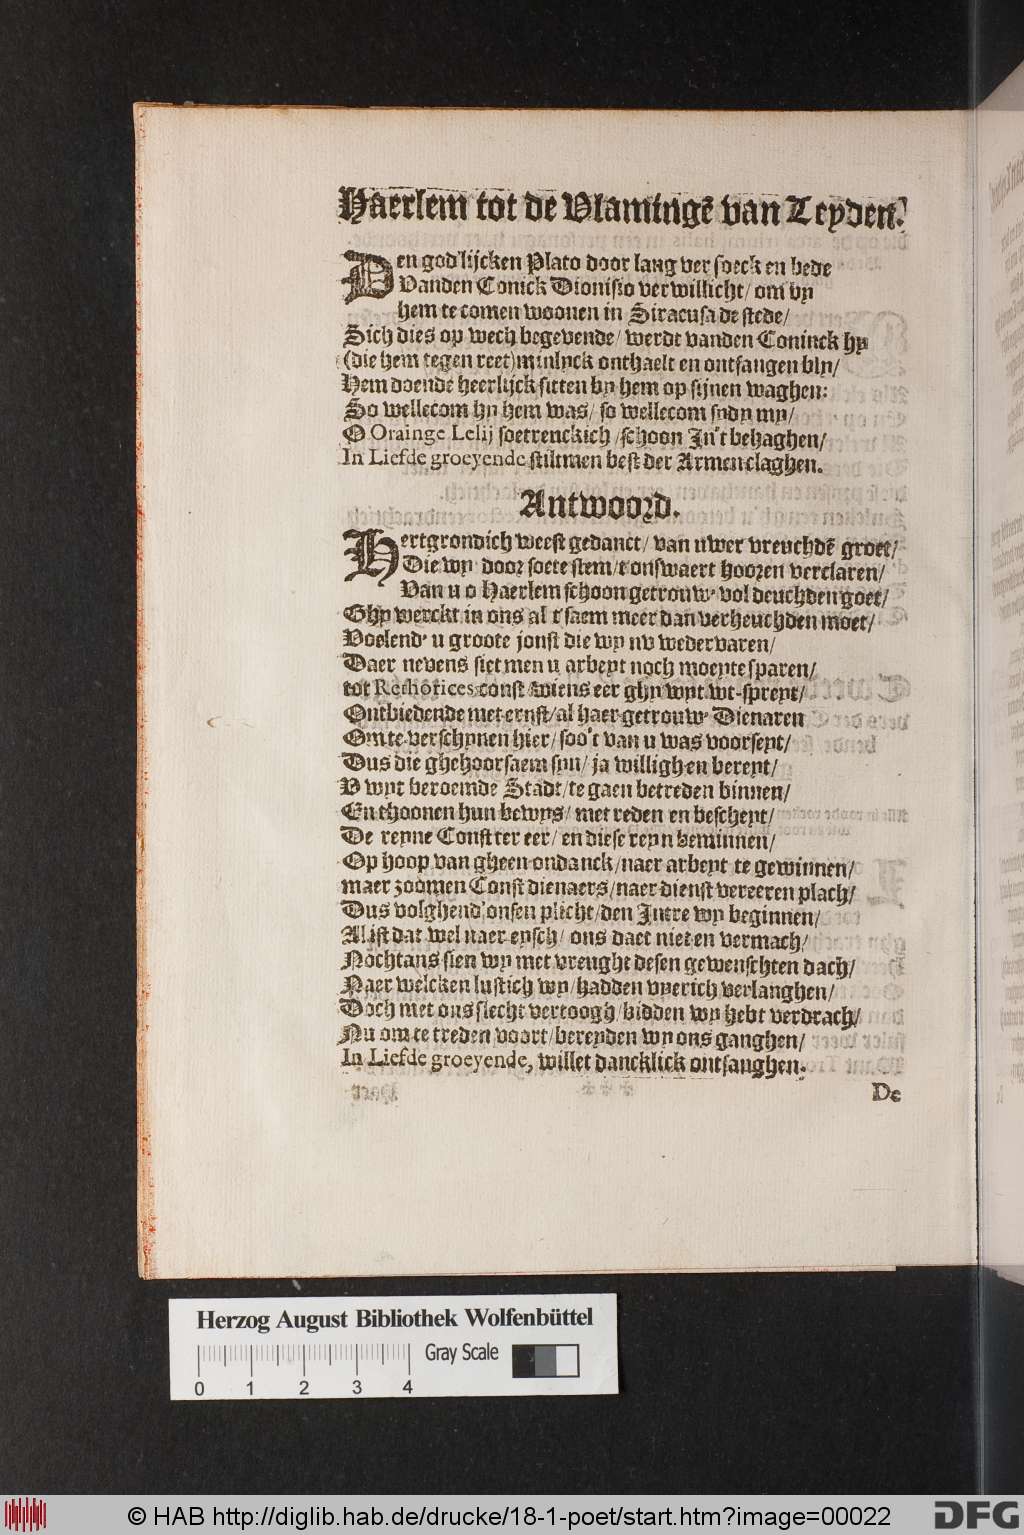 Haerlem tot de Vlamingē van Leyden.
Den god'lijcken Plato door lang versoeck en bede
Vanden Conick Dionisio verwillicht/ om by
hem te comen woonen in Siracusa de stede/
Sich dies op wech begevende/ werdt vanden Coninck hy
(die hem tegen reet) minlyck onthaelt en ontfangen bly/
Hem doende heerlijck sitten by hem op sijnen waghen:
So wellecom hy hem was/ so wellecom sydy my/
O Orainge Lelij soetrenckich/ schoon In't behaghen/
In Liefde groeyende stiltmen best der Armen claghen.
Antwoord.
Hertgrondich weest gedanct/ van uwer vreuchdē groet/
Die wy door soete stem/ t'onswaert hooren verclaren/
Van u o Haerlem schoon getrouw' vol deuchden goet/
Ghy werckt in ons al t'saem meer dan verheuchden moet/
Voelend' u groote jonst die wy nv wedervaren/
Daer nevens siet men u arbeyt noch moeyte sparen/
tot Rethorices const/ wiens eer ghy wyt wt-spreyt/
Ontbiedende met ernst/ al haer getrouw' Dienaren
Om te verschynen hier/ soo't van u was voorseyt/
Dus die ghehoorsaem syn/ ja willigh en bereyt/
V wyt beroemde Stadt/ te gaen betreden binnen/
En thoonen hun bewys/ met reden en bescheyt/
De reyne Const ter eer/ en diese reyn beminnen/
Op hoop van gheen ondanck/ naer arbeyt te gewinnen/
maer zoomen Const dienaers/ naer dienst vereeren plach/
Dus volghend' onsen plicht/ den Intre wy beginnen/
Al ist dat wel naer eysch/ ons daet niet en vermach/
Nochtans sien wy met vreught desen gewenschten dach/
Naer welcken lustich wy/ hadden vyerich verlanghen/
Doch met ons slecht vertoogh/ bidden wy hebt verdrach/
Nu om te treden voort/ bereyden wy ons ganghen/
In Liefde groeyende, willet dancklick ontfanghen.
De
Herzog August Bibliothek Wolfenbüttel
Gray Scale
0 1 2 3 4
© HAB http://diglib.hab.de/drucke/18-1-poet/start.htm?image=00022
DFG